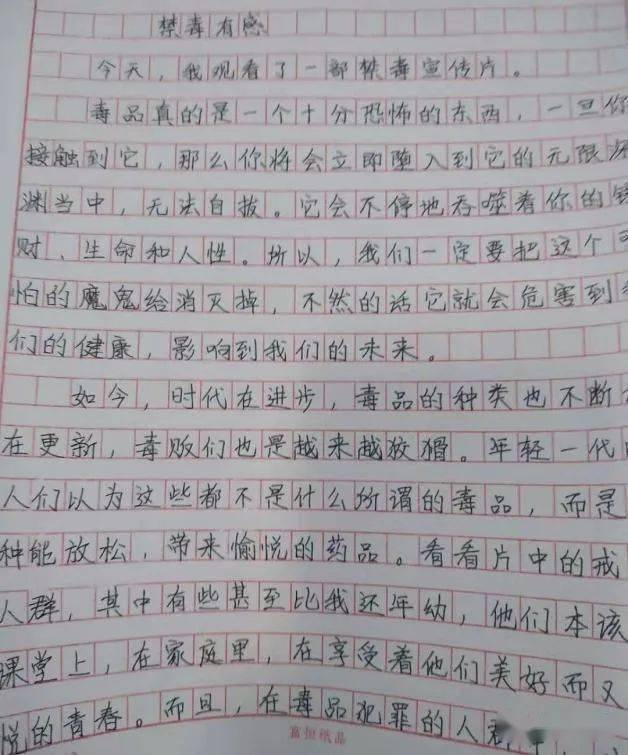 禁毒有感
今天，我观看了一部禁毒宣传片。
毒品真的是一个十分恐怖的东西，一旦你
接触到它，那么你将会立即堕入到它的无限深
渊当中，无法自拔。它会不停地吞噬着你的钱
财、生命和人性。所以，我们一定要把这个可
怕的魔鬼给消灭掉，不然的话它就会危害到
们的健康，影响到我们的未来。
如今，时代在进步，毒品的种类也不断
在更新，毒贩们也是越来越狡猾。年轻一代
人们以为这些都不是什么所谓的毒品，而是
种能放松，带来愉悦的药品。看看片中的戒
人群，其中有些甚至比我还年幼，他们本该
课堂上，在家庭里，在享受着他们美好而又
悦的青春。而且，在毒品犯罪的人群
富恒纸品